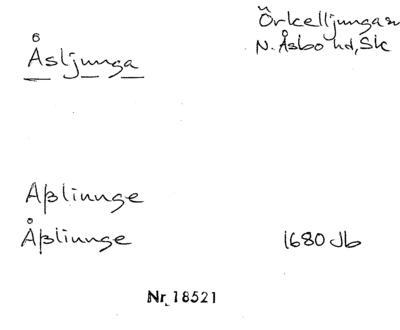 Åsljunga
Örkelljunga sn
N. Åsbo hd, Sk
Aßliunge
Åßliunge 1680 Jb
Nr 18521